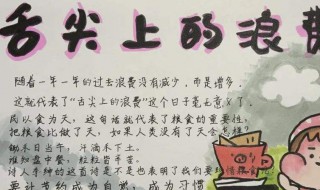 舌尖上的浪费
随着一年一年的过去浪费没有减少，而是增多，
这就代表了“舌尖上的浪费”这个日子毫无意义了.
民以食为天，这句话就代表了粮食的重要性，
把粮食比做了天，如果人类没有了天会怎样？
锄禾日当午，汗滴禾下土.
谁知盘中餐，粒粒皆辛苦.
诗人李绅的这首诗是不是也表明了我们要珍惜粮食
要让节约成为自觉，成为习惯